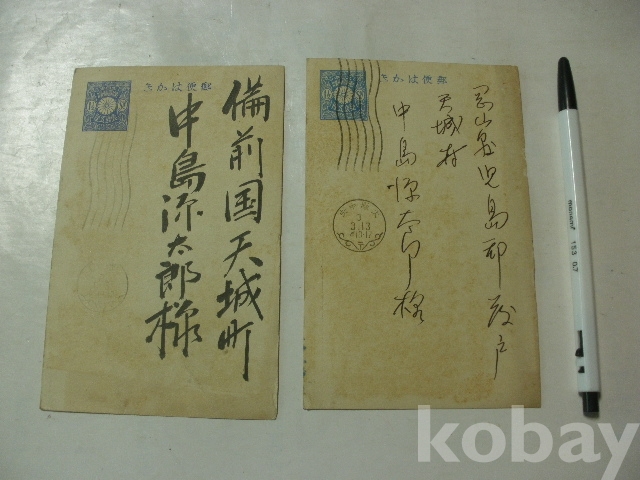 郵便はかき
備前国天城町
中島源太郎様
郵便はかき
岡山県児島郡茂戸
天城村
中島源太郎様
3.13
kobay